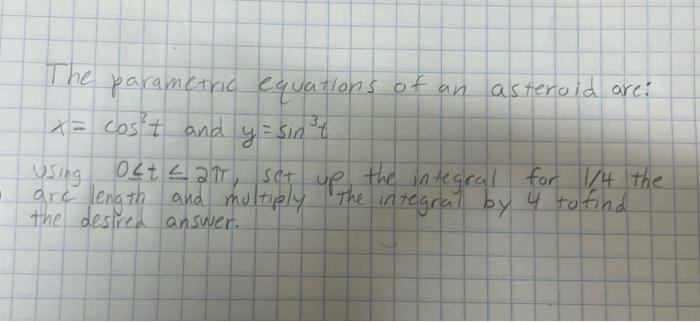 The parametric equations of an asteroid are:
x = cos³t and y = sin³t
using 0≤t≤2π, set up the integral for 1/4 the
arc length and multiply the integral by 4 to find
the desired answer.